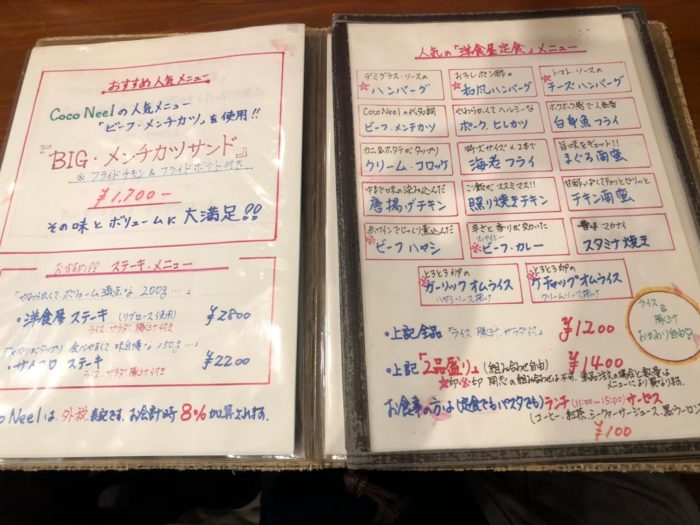 おすすめ人気メニュー
Coco Neelの人気メニュー
「ビーフ・メンチカツ」を使用!!
『BIG・メンチカツサンド』
※フライドチキン&フライドポテト付き
¥1,700-
その味とボリュームに大満足!!
おすすめ!! ステーキ・メニュー
「やわらかくてボリューム満点な200g…」
・洋食屋ステーキ(リブロース使用) ¥2800
ライス サラダ 豚汁付き
食べやすくて 150g…」
・サイコロステーキ ¥2200
ライス、サラダ 豚汁付き
Coco Neelは外税表記です。お会計時8%加算されます。
人気の「洋食屋定食」メニュー
デミグラス・ソースの
ハンバーグ
おろしポン酢の
和風ハンバーグ
トマト・ソースの
チーズハンバーグ
Coco Neelの代名詞
ビーフ・メンチカツ
やわらかくてヘルシーな
ポーク・ヒレカツ
ホクホク感で人気者
白身魚フライ
カニ&ホタテがタップリ
クリーム・コロッケ
特大サイズ×2本で
海老フライ
旨味をギュット!!
まぐろ南蛮
中まで味の染み込んだ
唐揚げチキン
ご飯がススミマス!!
照り焼きチキン
チキン南蛮
赤ワインでじっくり煮込んだ
※ビーフハヤシ
辛さと香りが
スパイシー
※ビーフ・カレー
マカナイ
スタミナ焼き
とろとろ卵の
※ガーリックオムライス
ハヤシソース掛け
とろとろ卵の
※ケチャップオムライス
クリームソース掛け
ライス
&
豚汁
おかわり自由
・上記全品「ライス・豚汁・サラダ付」 ¥1200
・上記「2品盛り」(組み合わせ自由) ¥1400
※印 ※印 同志の組み合わせは不可。
メニューにより異なります。
お食事の方は(定食でもパスタでも)ランチ(11:00~15:00)サービス
(コーヒー、紅茶、シークヮーサージュース、黒ウーロン
¥100